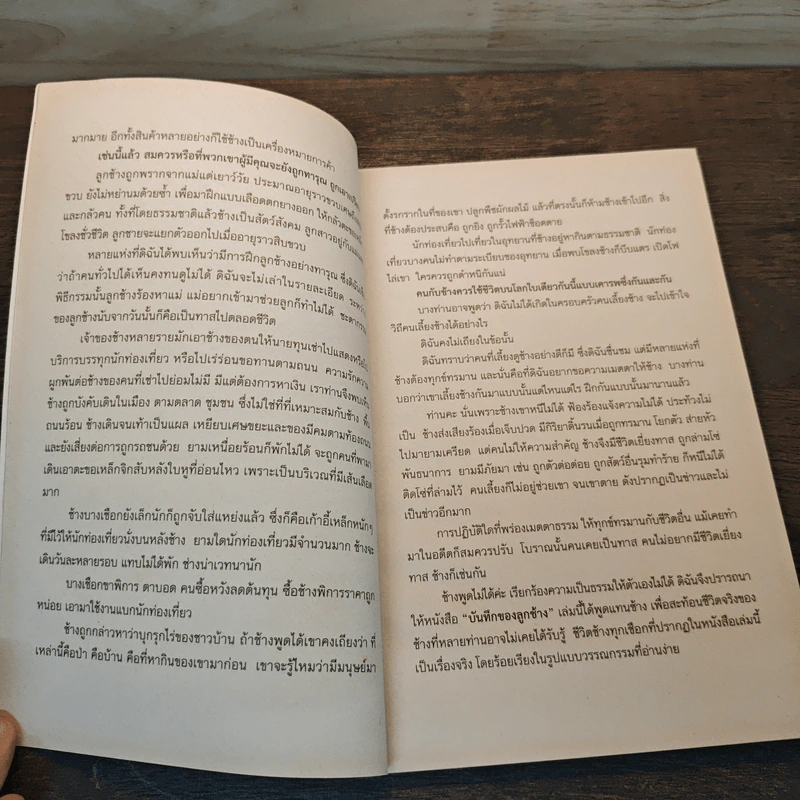 มากมาย อีกทั้งสินค้าหลายอย่างก็ใช้ช้างเป็นเครื่องหมายการค้า
เช่นนี้แล้ว สมควรหรือที่พวกเขาผู้มีคุณจะยังถูกทารุณ
ลูกช้างถูกพรากจากแม่แต่เยาว์วัย ประมาณอายุราวขวบเศษ
ขวบ ยังไม่หย่านมด้วยซ้ำ เพื่อมาฝึกแบบเลือดตกยางออก ให้กลัวตะขอ
และกลัวคน ทั้งที่โดยธรรมชาติแล้วช้างเป็นสัตว์สังคม ลูกสาวอยู่กับแม่
โขลงชั่วชีวิต ลูกชายจะแยกตัวออกไปเมื่ออายุราวสิบขวบ
หลายแห่งที่ดิฉันได้พบเห็นว่ามีการฝึกลูกช้างอย่างทารุณ ซึ่งดิฉัน
ว่าถ้าคนทั่วไปได้เห็นคงทนดูไม่ได้ ดิฉันจะไม่เล่าในรายละเอียด
พิธีกรรมนั้นลูกช้างร้องหาแม่ แม่อยากเข้ามาช่วยลูกก็ทำไม่ได้ ชะตากรรม
ของลูกช้างนับจากวันนั้นก็คือเป็นทาสไปตลอดชีวิต
เจ้าของช้างหลายรายมักเอาช้างของตนให้นายทุนเช่าไปแสดงหรือ
บริการบรรทุกนักท่องเที่ยว หรือไปเร่ร่อนขอทานตามถนน ความรักความ
ผูกพันต่อช้างของคนที่เช่าไปย่อมไม่มี มีแต่ต้องการหาเงิน เราท่านจึงพบเห็น
ช้างถูกบังคับเดินในเมือง ตามตลาด ชุมชน ซึ่งไม่ใช่ที่ที่เหมาะสมกับช้าง พื้น
ถนนร้อน ช้างเดินจนเท้าเป็นแผล เหยียบเศษขยะและของมีคมตามท้องถนน
และยังเสี่ยงต่อการถูกรถชนด้วย ยามเหนื่อยร้อนก็พักไม่ได้ จะถูกคนที่พามา
เดินเอาตะขอเหล็กจิกสับหลังใบหูที่อ่อนไหว เพราะเป็นบริเวณที่มีเส้นเลือด
มาก
ช้างบางเชือกยังเล็กนักก็ถูกจับใส่แหย่งแล้ว ซึ่งก็คือเก้าอี้เหล็กหนักๆ
ที่มีไว้ให้นักท่องเที่ยวนั่งบนหลังช้าง ยามใดนักท่องเที่ยวมีจำนวนมาก ช้างจะ
เดินวันละหลายรอบ แทบไม่ได้พัก ช่างน่าเวทนานัก
บางเชือกขาพิการ ตาบอด คนซื้อหวังลดต้นทุน ซื้อช้างพิการราคาถูก
หน่อย เอามาใช้งานแบกนักท่องเที่ยว
ช้างถูกกล่าวหาว่าบุกรุกไร่ของชาวบ้าน ถ้าช้างพูดได้เขาคงเถียงว่า ที่
เหล่านี้คือป่า คือบ้าน คือที่หากินของเขามาก่อน เขาจะรู้ไหมว่ามีมนุษย์มา
ตั้งรกรากในที่ของเขา ปลูกพืชผักผลไม้ แล้วที่ตรงนั้นก็ห้ามช้างเข้าไปอีก สิ่ง
ที่ช้างต้องประสบคือ ถูกยิง ถูกรั้วไฟฟ้าช็อตตาย
นักท่องเที่ยวไปเที่ยวในอุทยานที่ช้างอยู่หากินตามธรรมชาติ นักท่อง
เที่ยวบางคนไม่ทำตามระเบียบของอุทยาน เมื่อพบโขลงช้างก็บีบแตร เปิดไฟ
ไล่เขา ใครควรถูกตำหนิกันแน่
คนกับช้างควรใช้ชีวิตบนโลกใบเดียวกันนี้แบบเคารพซึ่งกันและกัน
บางท่านอาจพูดว่า ดิฉันไม่ได้เกิดในครอบครัวคนเลี้ยงช้าง จะไปเข้าใจ
วิถีคนเลี้ยงช้างได้อย่างไร
ดิฉันคงไม่เถียงในข้อนั้น
ดิฉันทราบว่าคนที่เลี้ยงดูช้างอย่างดีก็มี ซึ่งดิฉันชื่นชม แต่มีหลายแห่งที่
ช้างต้องทุกข์ทรมาน และนั่นคือที่ดิฉันอยากขอความเมตตาให้ช้าง บางท่าน
บอกว่าเขาเลี้ยงช้างกันมาแบบนั้นแต่ไหนแต่ไร ฝึกกันแบบนั้นมานานแล้ว
ท่านคะ นั่นเพราะช้างเขาหนีไม่ได้ ฟ้องร้องแจ้งความไม่ได้ ประท้วงไม่
เป็น ช้างส่งเสียงร้องเมื่อเจ็บปวด มีกิริยาดิ้นรนเมื่อถูกทรมาน โยกตัว ส่ายหัว
ไปมายามเครียด แต่คนไม่ให้ความสำคัญ ช้างจึงมีชีวิตเยี่ยงทาส ถูกล่ามโซ่
พันธนาการ ยามมีภัยมา เช่น ถูกตัวต่อต่อย ถูกสัตว์อื่นรุมทำร้าย ก็หนีไม่ได้
ติดโซ่ที่ล่ามไว้ คนเลี้ยงก็ไม่อยู่ช่วยเขา จนเขาตาย ดังปรากฏเป็นข่าวและไม่
เป็นข่าวอีกมาก
การปฏิบัติใดที่พร่องเมตตาธรรม ให้ทุกข์ทรมานกับชีวิตอื่น แม้เคยทำ
มาในอดีตก็สมควรปรับ โบราณนั้นคนเคยเป็นทาส คนไม่อยากมีชีวิตเยี่ยง
ทาส ช้างก็เช่นกัน
ช้างพูดไม่ได้ค่ะ เรียกร้องความเป็นธรรมให้ตัวเองไม่ได้ ดิฉันจึงปรารถนา
ให้หนังสือ “บันทึกของลูกช้าง” เล่มนี้ได้พูดแทนช้าง เพื่อสะท้อนชีวิตจริงของ
ช้างที่หลายท่านอาจไม่เคยได้รับรู้ ชีวิตช้างทุกเชือกที่ปรากฏในหนังสือเล่มนี้
เป็นเรื่องจริง โดยร้อยเรียงในรูปแบบวรรณกรรมที่อ่านง่าย